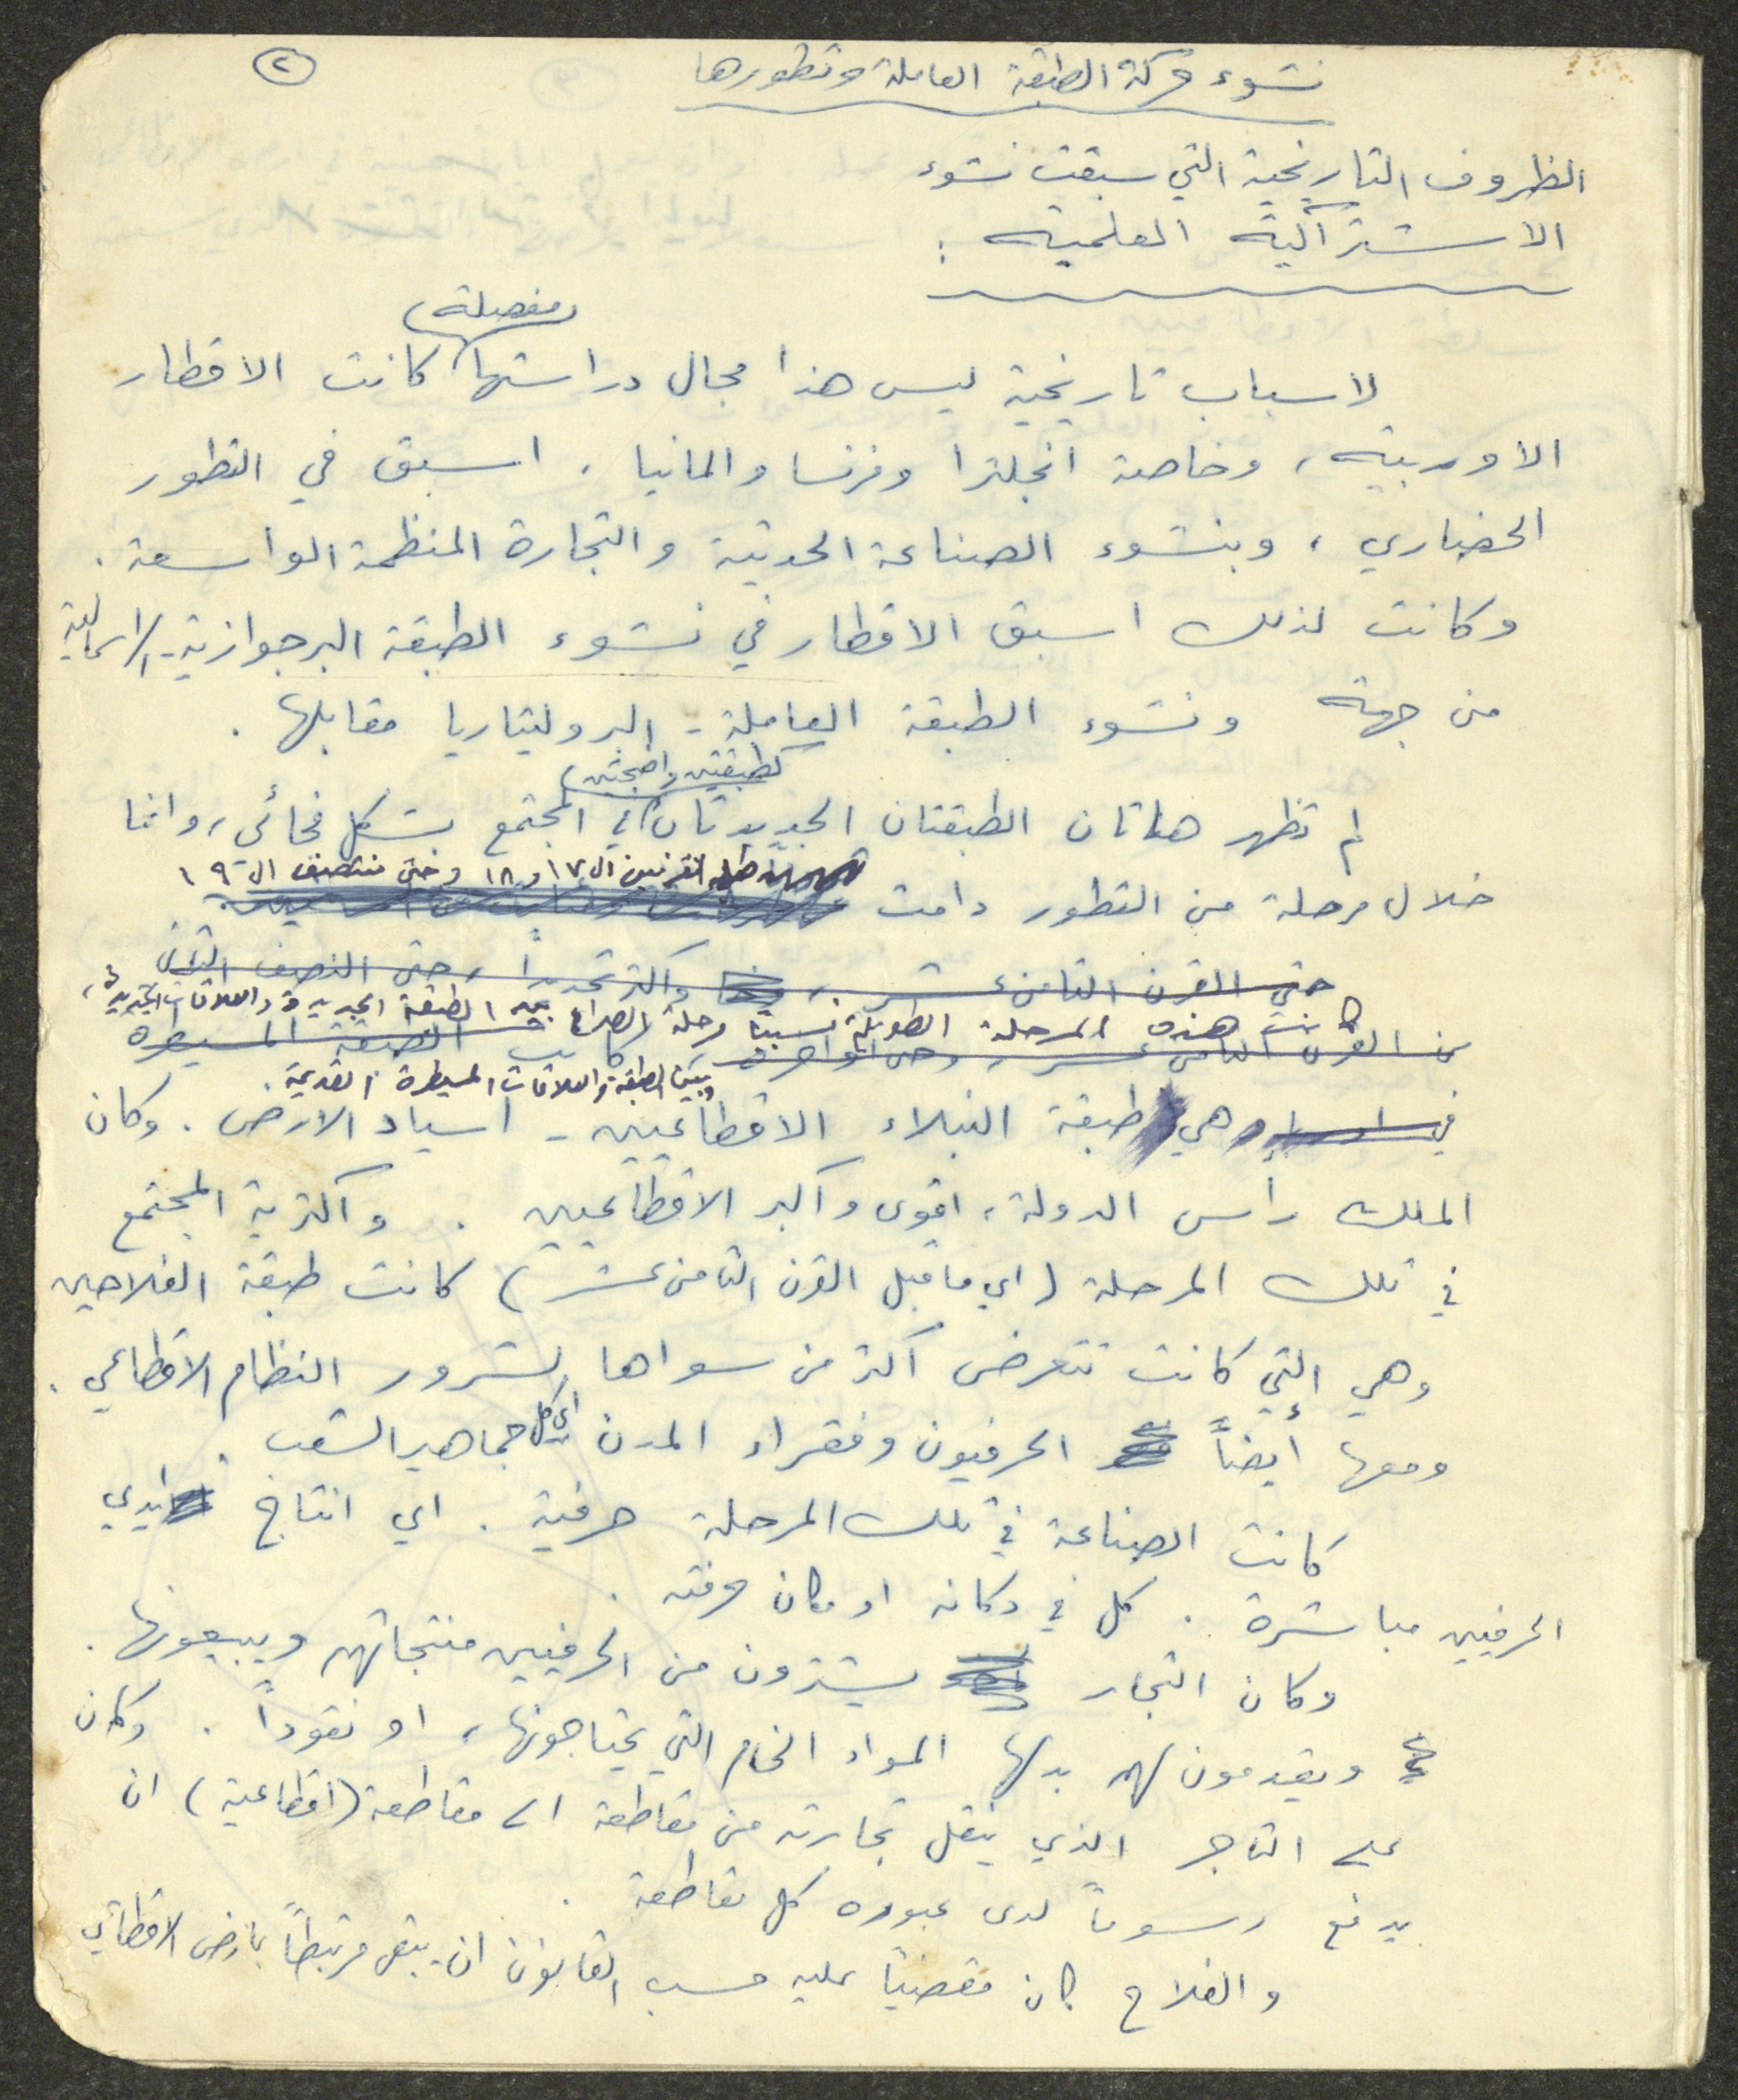 ٢
نشوء حركة الطبقة العاملة وتطورها
الظروف التاريخية التي سبقت نشوء
الاشتراكية العلمية :
مفصلة
لاسباب تاريخية ليس هذا مجال دراستها كانت الاقطار
الاوربية ، وخاصة انجلترا وفرنسا والمانيا ، اسبق في التطور
الحضاري ، وبنشوء الصناعة الحديثة والتجارة المنظمة الواسعة .
وكانت لذلك اسبق الاقطار في نشوء الطبقة البرجوازية - الرأسمالية
من جهة ونشوء الطبقة العاملة - البروليتاريا مقابلها .
كطبقتين واضحتين
لم تظهر هاتان الطبقتان الجديدتان في المجتمع بشكل فجائي ، وانما
القرنين ال ١٧ و ١٨ وحتى منتصف ال ١٩
خلال مرحلة من التطور دامت
حتى القرن الثامن عشر ، واكثر تحديداً ، حتى النصف الثاني
كانت هذه المرحلة الطويلة نسبياً مرحلة الصراع بين الطبقة الجديدة والعلاقات الجديدة ،
من القرن الثامن عشر ، كانت الطبقة المسيطرة
وبين الطبقة والعلاقات المسيطرة القديمة .
في اوربا وهي طبقة النبلاء الاقطاعيين - اسياد الارض . وكان
الملك رأس الدولة ، اقوى واكبر الاقطاعيين . واكثرية المجتمع
في تلك المرحلة ( اي ما قبل القرن الثامن عشر ) كانت طبقة الفلاحين
وهي التي كانت تتعرض اكثر من سواها لشرور النظام الاقطاعي .
ومعها أيضاً الحرفيون وفقراء المدن اي كل جماهير الشعب .
كانت الصناعة في تلك المرحلة حرفية . اي انتاج ايدي
الحرفيين مباشرة . كل في دكانه او مكان حرفته .
وكان التجار يشترون من الحرفيين منتجاتهم ويبيعونها .
ويقدمون لهم بدلها المواد الخام التي يحتاجونها ، او نقوداً . وكان
على التاجر الذي ينقل تجارته من مقاطعة الى مقاطعة ( اقطاعية ) ان
يدفع رسوماً لدى عبوره كل مقاطعة .
والفلاح كان مقضياً عليه حسب القانون ان يبقى مرتبطاً بارض الاقطاعي